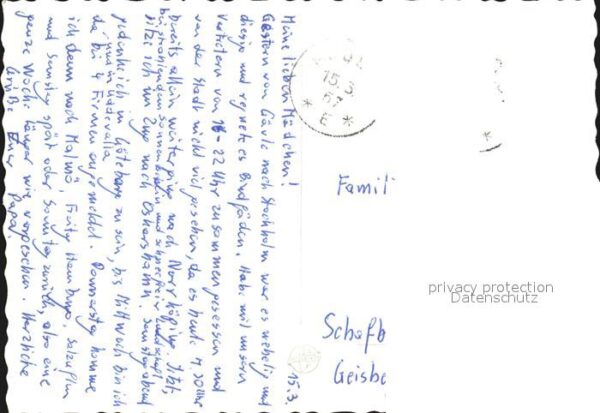 15.3.
Meine lieben Mädchen!
Gestern von Gävle nach Stockholm war es neblig und
diesig und regnete es Bindfäden. Habe mit unsern
Vertretern von 16-22 Uhr zusammen gesessen und
von der Stadt nicht viel gesehen, da es heute M. sollte
bereits allein weiterging nach Norrköping. Jetzt,
bei strahlendem Sonnenschein und
sitze ich im Zug nach Oskarshamn. Samstag abend
gedenke ich in Göteborg zu sein, bis Mittwoch bin ich
und in Uddevalla
da bei 4 Firmen angemeldet. Donnerstag komme
ich dann nach Malmö, Freitag Hamburg,
und Samstag spät oder Sonntag zurück, also eine
ganze Woche länger wie vorgesehen. Herzliche
Grüße Euer Papa.
15.3.
67
* E *
Famili
Schafb
Geisbe
privacy protection
Datenschutz